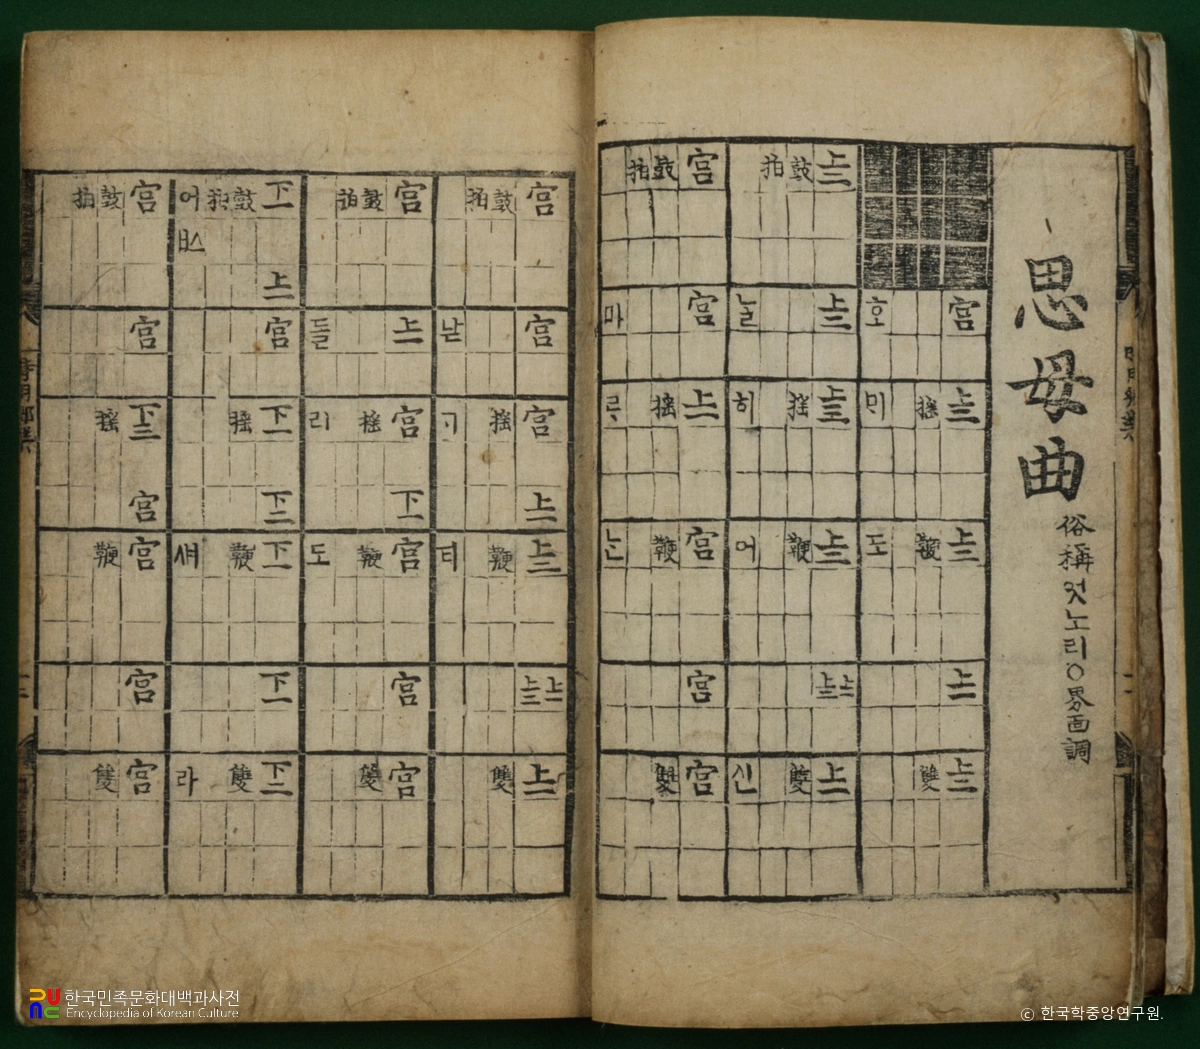 思母曲
俗稱엇노리○界面調
宮 上二 上二 上一 上二
搖 鞭 雙
호 미 도
上二 上二 上三 上二 上二上一 上一
鼓 搖 鞭 雙
拍
놀 히 어 신
宮 宮 上一 宮 宮 宮
鼓 搖 鞭 雙
拍
마 ᄅᆞ 는
宮 宮 宮 上一 上二 上二上一 上一
鼓 搖 鞭 雙
拍
낟 티
宮 上一 宮 下一 宮 宮 宮
鼓 搖 鞭 雙
拍
들 리 도
下一 上一 宮 下一 下二 下一 下一 下二
鼓 搖 鞭 雙
拍
어 ㅄ 셔 라
宮 宮 下二 宮 宮 宮 宮
鼓 搖 鞭 雙
拍
한국민족문화대백과사전
Encyclopedia of Korean Culture
© 한국학중앙연구원.